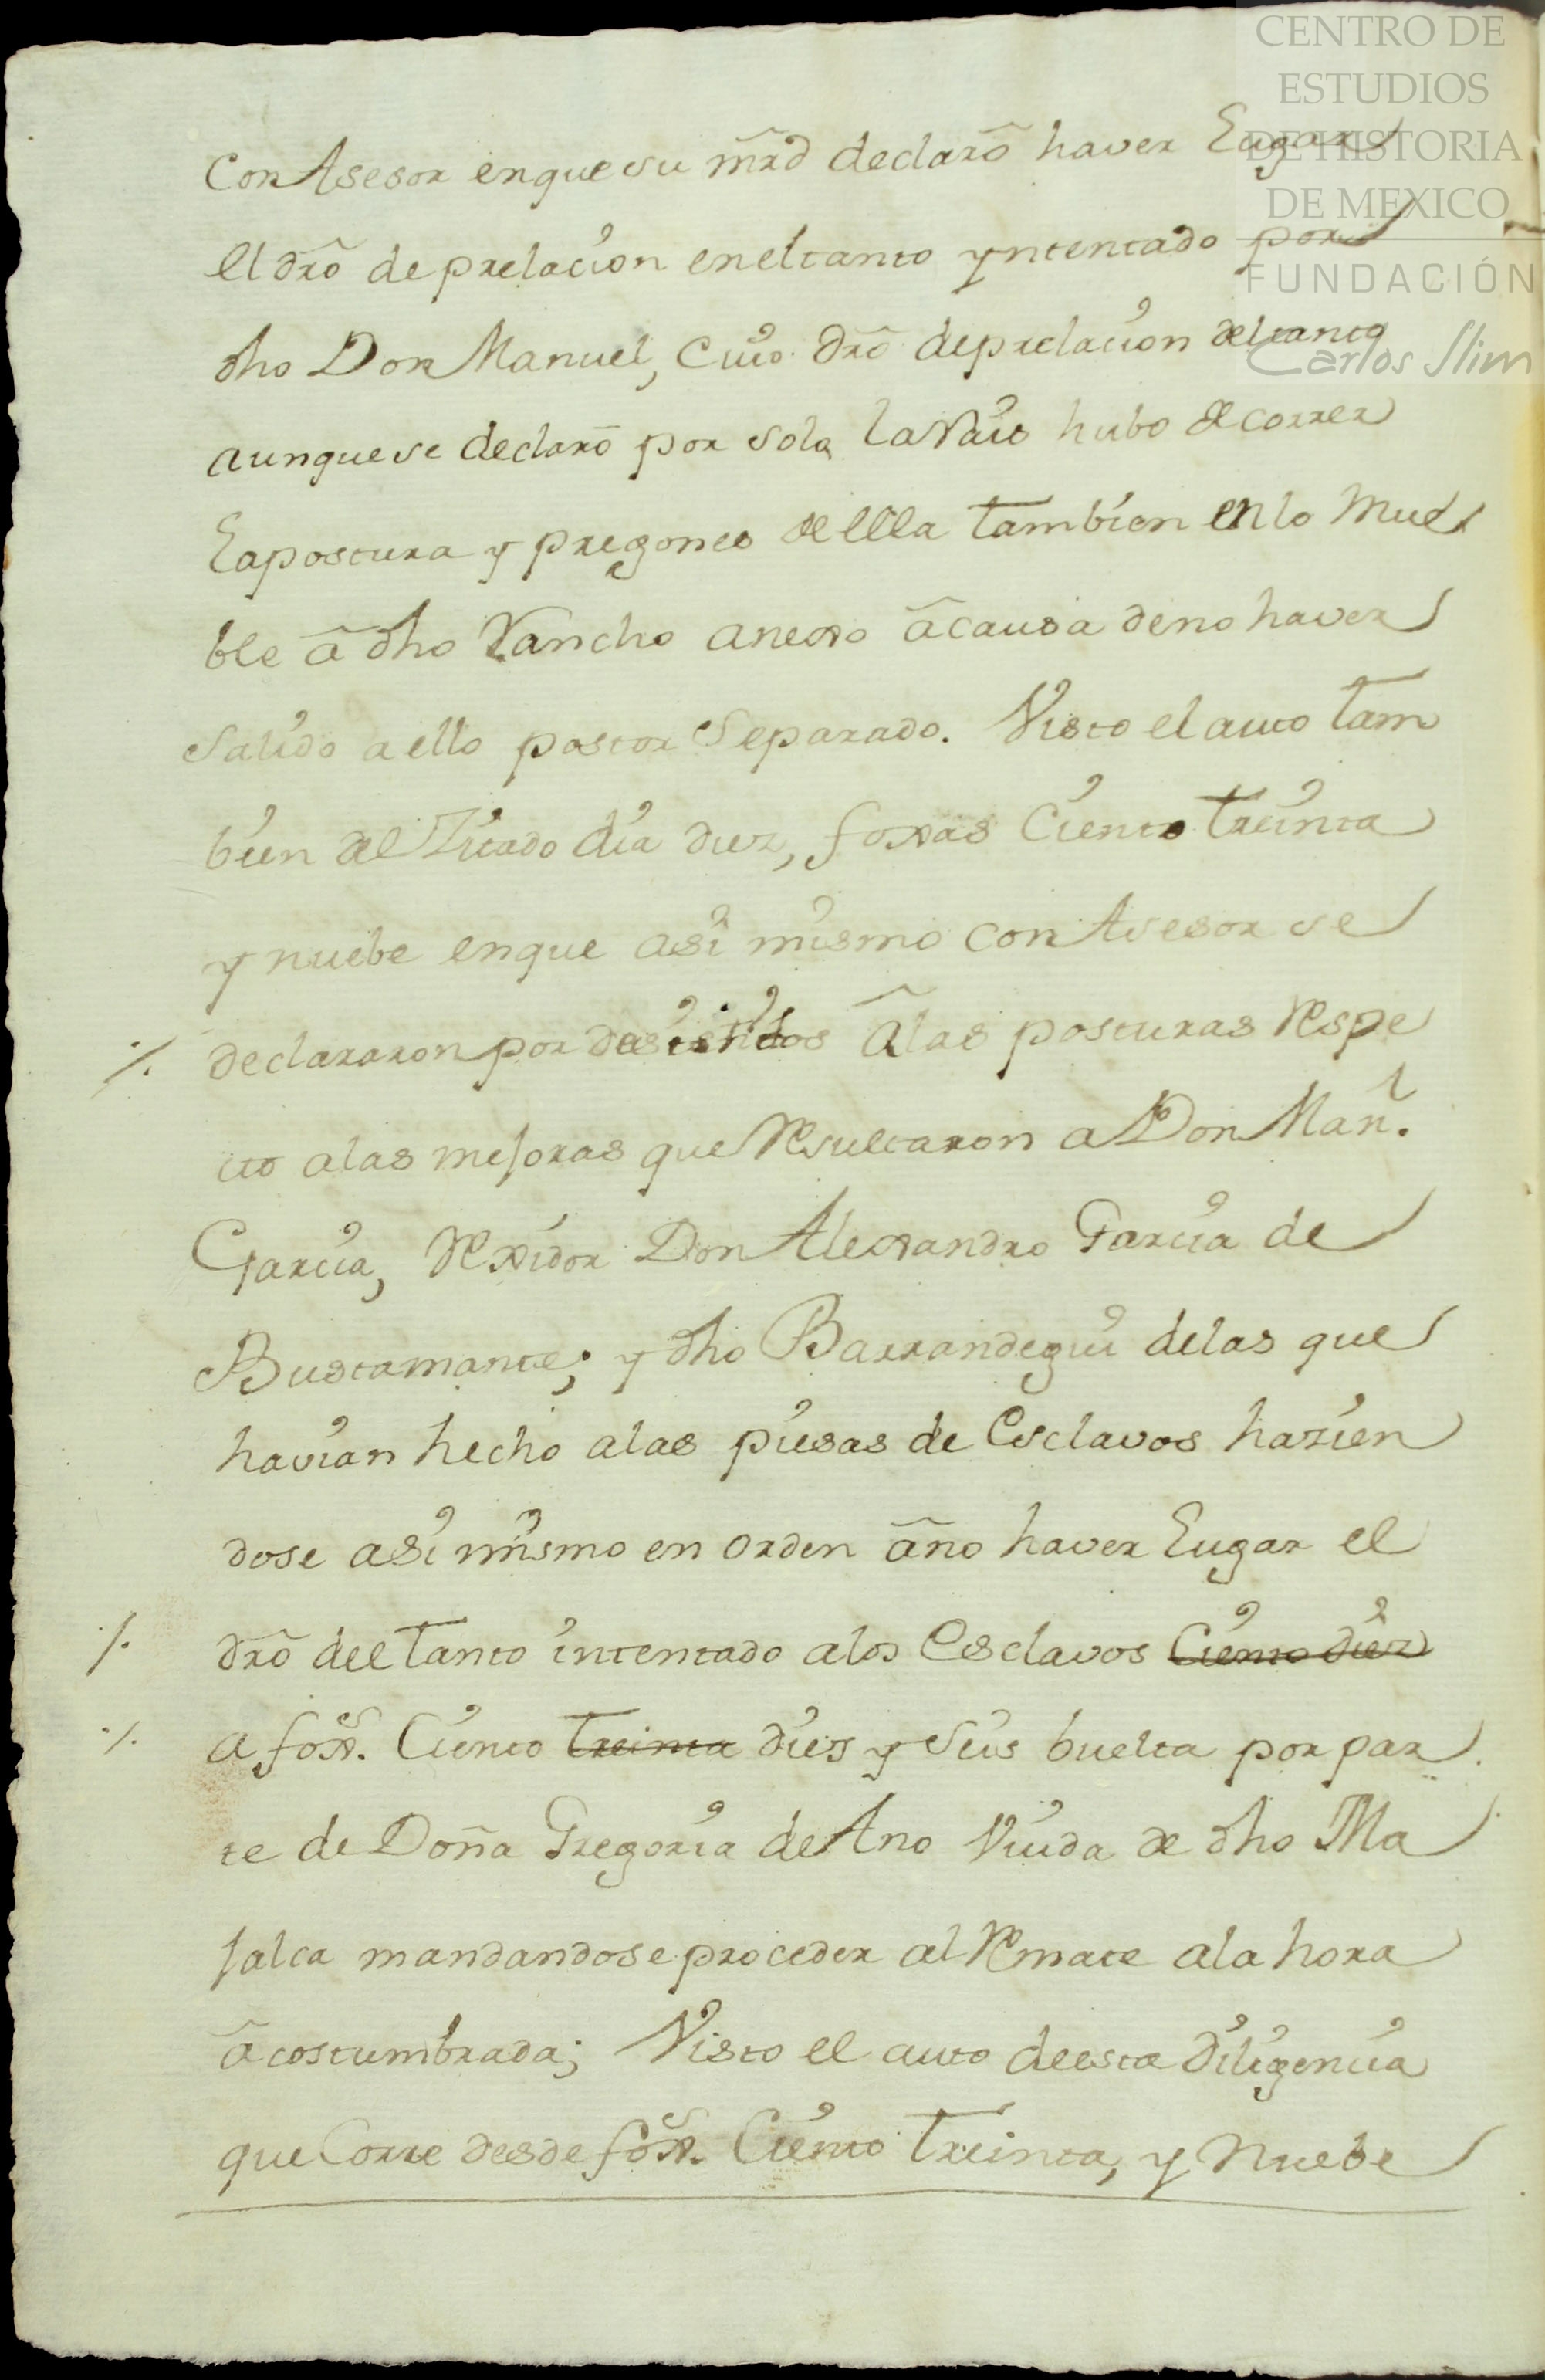 CENTRO DE
ESTUDIOS
DE HISTORIA
DE MEXICO
FUNDACIÓN
Carlos Slim
con Asesor enque su mr̃d declaro haver Lugar
el dr̃o de prelacion eneltanto yntentado por
dho Don Manuel, cuio dr̃o de prelacion deltanto
aunquese declaro por sola la Raiz hubo de correr
la postura y pregones de ella tambien en lo mue
ble â dho Rancho anexo âcausa deno haver
salido a ello postor separado. Visto el auto tam
bien del Zitado dia diez, foxas Ciento treinta
y nuebe enque asi mismo con Asesor se
./. declararon por desistidos âlas posturas respe
cto alas mejoras que resultaron a Don Man.l
Garcia, Rexidor Don Alexandro Garcia de
Bustamante; y dho Barrandegui delas que
havian hecho alas piesas de Esclavos hazien
dose asi mismo en orden âno haver Lugar el
./. dr̃o del tanto intentado alos Esclavos Ciento diez
./. a fox.s Ciento treinta dies y seis buelta por par
te de Doña Gregoria de Ano Viuda de dho Ma
jalca mandandose proceder al Remate ala hora
âcostumbrada; Visto el auto deesta diligencia
que Corre desde fox.s Ciento treinta, y Nuebe